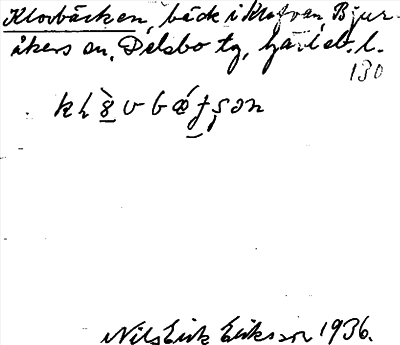 Klovbäcken, bäck i Klofvan, Bjur-
åkers sn, Delsbo tg, Gävleb. l.
130
Nils Erik Eriksson 1936.